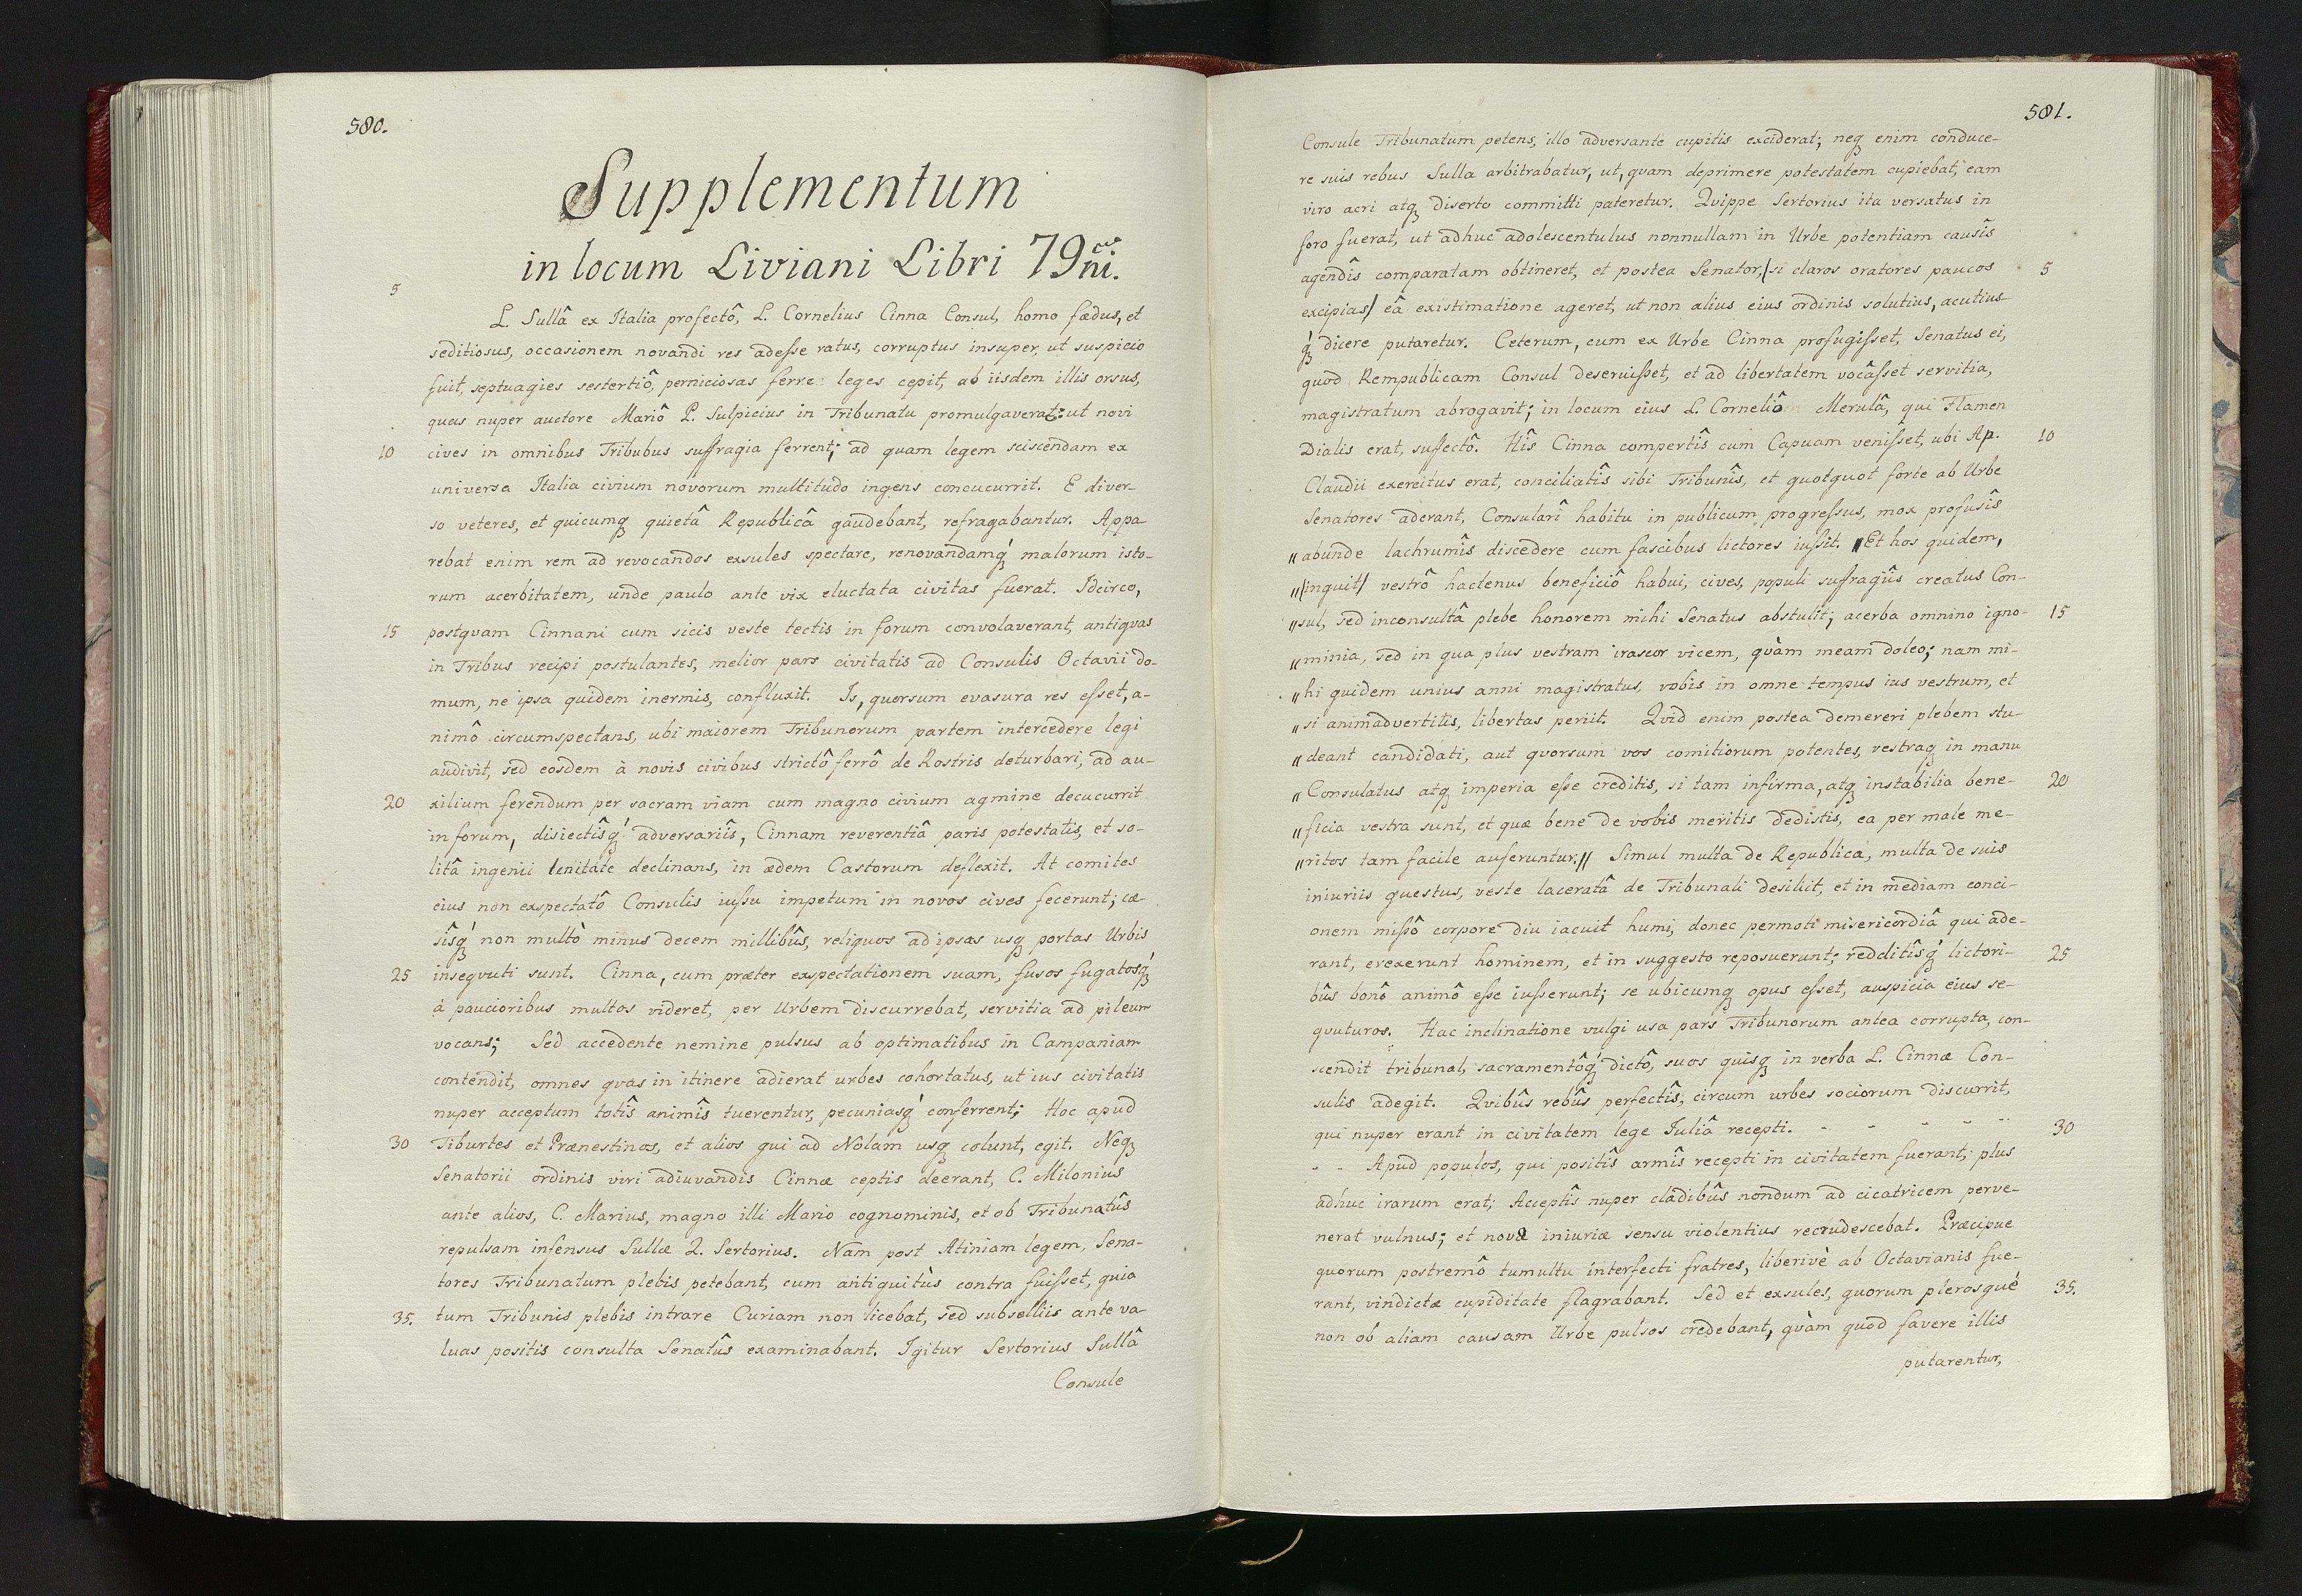 580.
Supplementum
in locum Liviani Libri 79ni.
5
L. Sullâ ex Italia profectô, L. Cornelius Cinna Consul, homo fædus, et
seditiosus, occasionem novandi res adesse ratus, corruptus insuper, ut suspicio
fuit, septuagies sestertiô, perniciosas ferre leges cepit, ab iisdem illis orsus,
quas nuper auctore Mariô P. Sulpicius in Tribunatu promulgaverat: ut novi
10 cives in omnibus Tribubus suffragia ferrent; ad quam legem sciscendam ex
universa Italia civium novorum multitudo ingens concucurrit. E diver-
so veteres, et quicumq quietâ Republicâ gaudebant, refragabantur. Appa
rebat enim rem ad revocandos exsules spectare, renovandamq́ malorum isto-
rum acerbitatem, unde paulo ante vix eluctata civitas fuerat. Idcirco,
15 postqvam Cinnani cum sicis veste tectis in forum convolaverant, antiqvas
in Tribus recipi postulantes, melior pars civitatis ad Consulis Octavii do-
mum, ne ipsa quidem inermis, confluxit. Is, quorsum evasura res esset, a-
nimô circumspectans, ubi maiorem Tribunorum partem intercedere legi
audivit, sed eosdem à novis civibus strictô ferrô de Rostris deturbari, ad au-
20 xilium ferendum per sacram viam cum magno civium agmine decucurrit
in forum, disiectîsq́ adversariîs, Cinnam reverentiâ paris potestatis, et so-
litâ ingenii lenitate declinans, in ædem Castorum deflexit. At comites
eius non exspectatô Consulis iussu impetum in novos cives fecerunt; cæ-
sîsq́ non multò minus decem millibûs, reliquos ad ipsas usq portas Urbis
25 inseqvuti sunt. Cinna, cum præter exspectationem suam, fusos fugatosq́
à paucioribus multos videret, per Urbem discurrebat, servitia ad pileum
vocans; Sed accedente nemine pulsus ab optimatibus in Campaniam
contendit, omnes qvas in itinere adierat urbes cohortatus, ut ius civitatis
nuper acceptum totîs animîs tuerentur, pecuniasq́ conferrent; Hoc apud
30 Tiburtes et Prænestinos, et alios qui ad Nolam usq colunt, egit. Neq
Senatorii ordinis viri adiuvandis Cinnæ ceptis deerant, C. Milonius
ante alios, C. Marius, magno illi Mario cognominis, et ob Tribunatûs
repulsam infensus Sullæ Q. Sertorius. Nam post Atiniam legem, Sena-
tores Tribunatum plebis petebant, cum antiquitùs contra fuisset, quia
35. tum Tribunis plebis intrare Curiam non licebat, sed subselliis ante va-
luas positis consulta Senatûs examinabant. Igitur Sertorius Sullâ
Consule
581.
Consule Tribunatum petens, illo adversante cupitis exciderat; neq enim conduce-
re suis rebus Sulla arbitrabatur, ut, qvam deprimere potestatem cupiebat, eam
viro acri atq diserto committi pateretur. Qvippe Sertorius ita versatus in
foro fuerat, ut adhuc adolescentulus nonnullam in Urbe potentiam causîs
agendîs comparatam obtineret, et postea Senator, /si claros oratores paucos 5
excipias/ eâ existimatione ageret, ut non alius eius ordinis solutius, acutius-
q́ dicere putaretur. Ceterum, cum ex Urbe Cinna profugisset, Senatus ei,
quod Rempublicam Consul deseruisset, et ad libertatem vocâsset servitia,
magistratum abrogavit; in locum eius L. Corneliô Merulâ, qui Flamen
Dialis erat, suffectô. Hîs Cinna compertîs cum Capuam venisset, ubi Ap. 10
Claudii exercitus erat, conciliatîs sibi Tribunîs, et quotquot forte ab Urbe
Senatores aderant, Consulari habitu in publicum progressus, mox profusîs
〃abunde lachrumîs discedere cum fascibus lictores iussit. 〃Et hos quidem,
〃/inquit/ vestrô hactenus beneficiô habui, cives, populi suffragiîs creatus Con-
〃sul, sed inconsultâ plebe honorem mihi Senatus abstulit; acerba omnino igno- 15
〃minia, sed in qua plus vestram irascor vicem, quàm meam doleo; nam mi-
〃hi quidem unius anni magistratus, vobis in omne tempus ius vestrum, et
〃si animadvertitis, libertas periit. Qvid enim postea demereri plebem stu-
〃deant candidati, aut qvorsum vos comitiorum potentes, vestraq in manu
〃Consulatus atq imperia esse creditis, si tam infirma, atq instabilia bene- 20
〃ficia vestra sunt, et quæ bene de vobis meritis dedistis, ea per male me-
〃ritos tam facile auferuntur.〃 Simul multa de Republica, multa de suis
iniuriis questus, veste laceratâ de Tribunali desiliit, et in mediam conci-
onem missô corpore diu iacuit humi, donec permoti misericordiâ qui ade-
rant, erexerunt hominem, et in suggesto reposuerunt; redditîsq́ lictori- 25
bûs bonô animô esse iusserunt; se ubicumq opus esset, auspicia eius se-
qvuturos. Hac inclinatione vulgi usa pars Tribunorum antea corrupta, con-
scendit tribunal, sacramentôq́ dictô, suos quisq in verba L. Cinnæ Con-
sulis adegit. Qvibûs rebûs perfectîs, circum urbes sociorum discurrit,
qui nuper erant in civitatem lege Iuliâ recepti. - - - - - 30
- - Apud populos, qui positîs armîs recepti in civitatem fuerant, plus
adhuc irarum erat; Acceptîs nuper cladibûs nondum ad cicatricem perve-
nerat vulnus; et novæ iniuriæ sensu violentius recrudescebat. Præcipue
quorum postremô tumultu interfecti fratres, liberivè ab Octavianis fue-
rant, vindictæ cupiditate flagrabant. Sed et exsules, quorum plerosqué 35.
non ob aliam causam Urbe pulsos credebant, qvàm quod favere illis
putarentur,